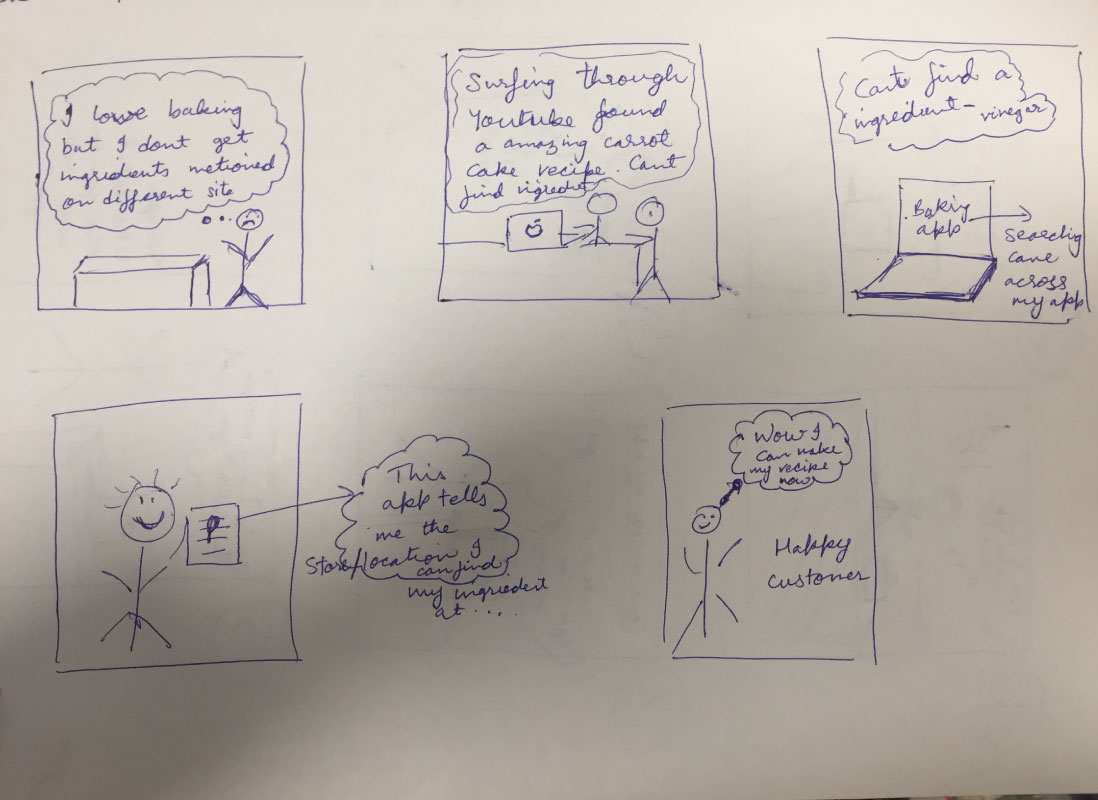 I love baking
but I dont get
ingridients metioned
on different site
Surfing through
Youtube found
a amazing carrot
cake recipe. Cant
find ingredient
Cant find a
ingredient - vinegar
Baking
app
Searching
came
across
my app
This
app tells
me the
Store/location I
can find
my ingredient
at ....
Wow I
can make
my recipe
now
Happy
customer